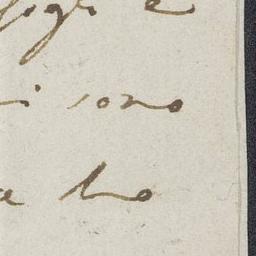 fogli e
i sono
a ho